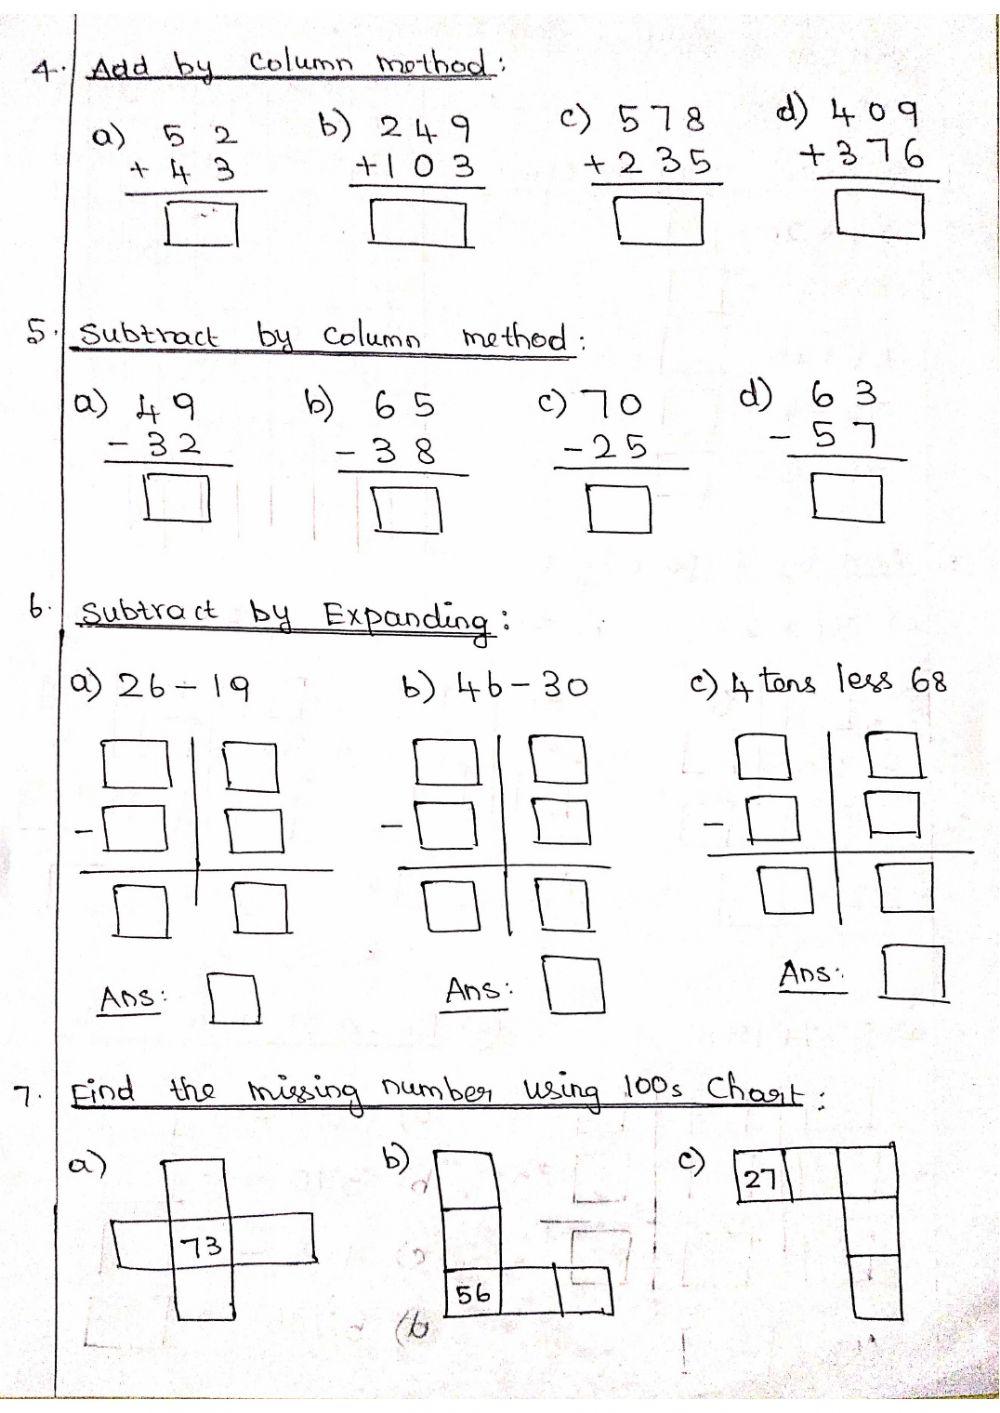 4. Add by Column method:
a) 52 b) 249 c) 578 d) 409
+ 43 +103 +235 +376
5. Subtract by Column method:
a) 49 b) 65 c) 70 d) 63
- 32 - 38 - 25 - 57
6. Subtract by Expanding:
a) 26 - 19 b) 46 - 30 c) 4 tens less 68
- - -
Ans: Ans: Ans:
7. Find the missing number using 100s Chart:
a) b) c) 27
73
56
(b